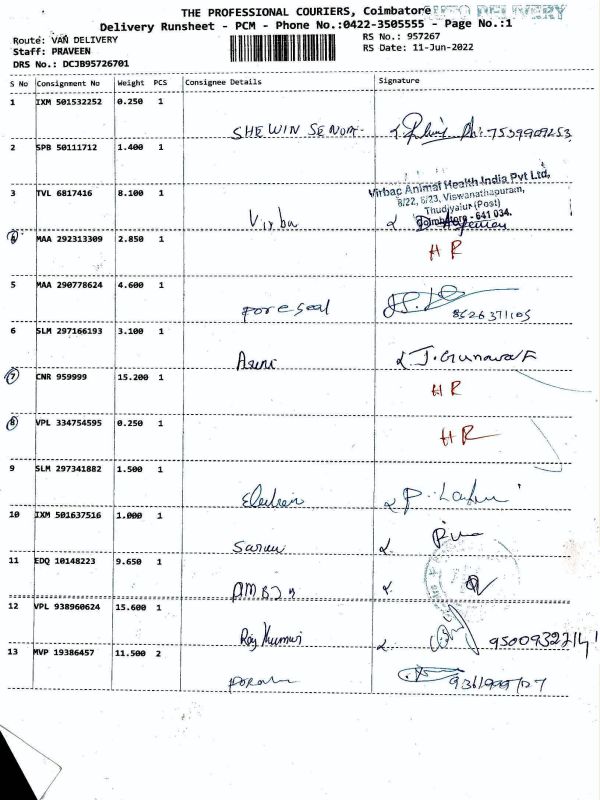 THE PROFESSIONAL COURIERS, Coimbatore
AUTO DELIVERY
Delivery Runsheet - PCM - Phone No.:0422-3505555 - Page No.:1
Route: VAN DELIVERY RS No.: 957267
Staff: PRAVEEN RS Date: 11-Jun-2022
DRS No.: DCJB95726701
S No Consignment No Weight PCS Consignee Details Signature
1 IXM 501532252 0.250 1
SHEWIN SENOR Ph: 7539909253
2 SPB 50111712 1.400 1
Virbac Animal Health India Pvt Ltd,
6/22, 6/23, Viswanathapuram,
Thudiyalur (Post)
Coimbatore - 641 034.
3 TVL 6817416 8.100 1
Virba
6 MAA 292313309 2.850 1
HR
5 MAA 290778624 4.600 1
foreseal 8526371105
6 SLM 297166193 3.100 1
Asini J. Gunawa
7 CNR 959999 15.200 1
HR
8 VPL 334754595 0.250 1
HR
9 SLM 297341882 1.500 1
P.
10 IXM 501637516 1.000 1
Saran
11 EDQ 10148223 9.650 1
12 VPL 938960624 15.600 1
Raj Kumar
13 MVP 19386457 11.500 2